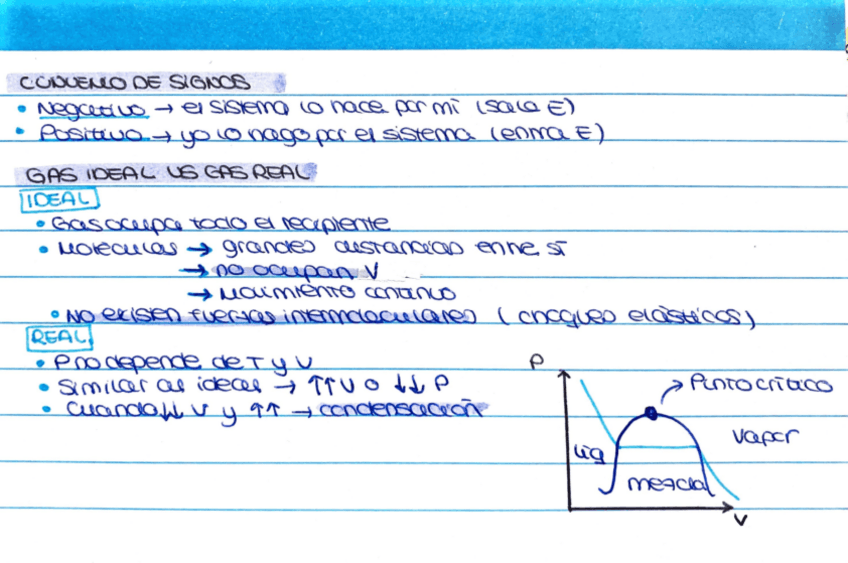 CONVENIO DE SIGNOS
• Negativo → el sistema lo hace por mí (sale E)
• Positivo → yo lo hago por el sistema (entra E)
GAS IDEAL VS GAS REAL
IDEAL
• Gas ocupa todo el recipiente
• Moléculas → grandes distancias entre sí
→ no ocupan V
→ Movimiento continuo
• No existen fuerzas intermoleculares (choques elásticos)
REAL
• P no depende de T y V
• Similar al ideal → ↑↑V o ↓↓ P
• Cuando ↓↓ V y ↑↑ → condensación
P
Punto crítico
vapor
liq
mezcla
V